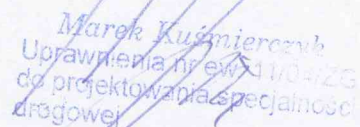 Marek Kuśmierczyk
Uprawnienia nr ew. 11/04/ZG
do projektowania specjalność
drogowej